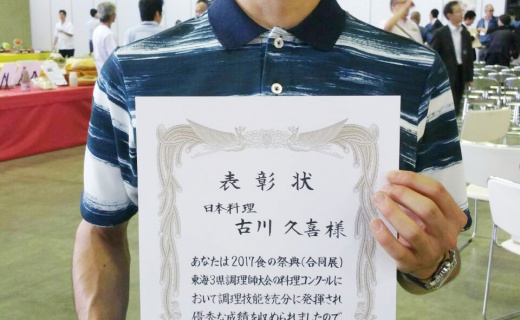 表彰状
日本料理
古川久喜様
あなたは2017食の祭典(合同展)
東海3県調理師大会の料理コンクールに
おいて調理技能を充分に発揮され
優秀な成績を収められましたので